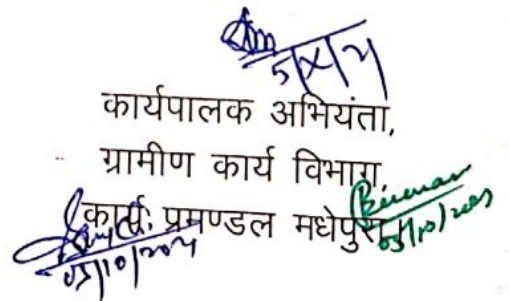 5/X/21
कार्यपालक अभियंता,
ग्रामीण कार्य विभाग,
कार्य प्रमण्डल मधेपुरा।
05/10/2021